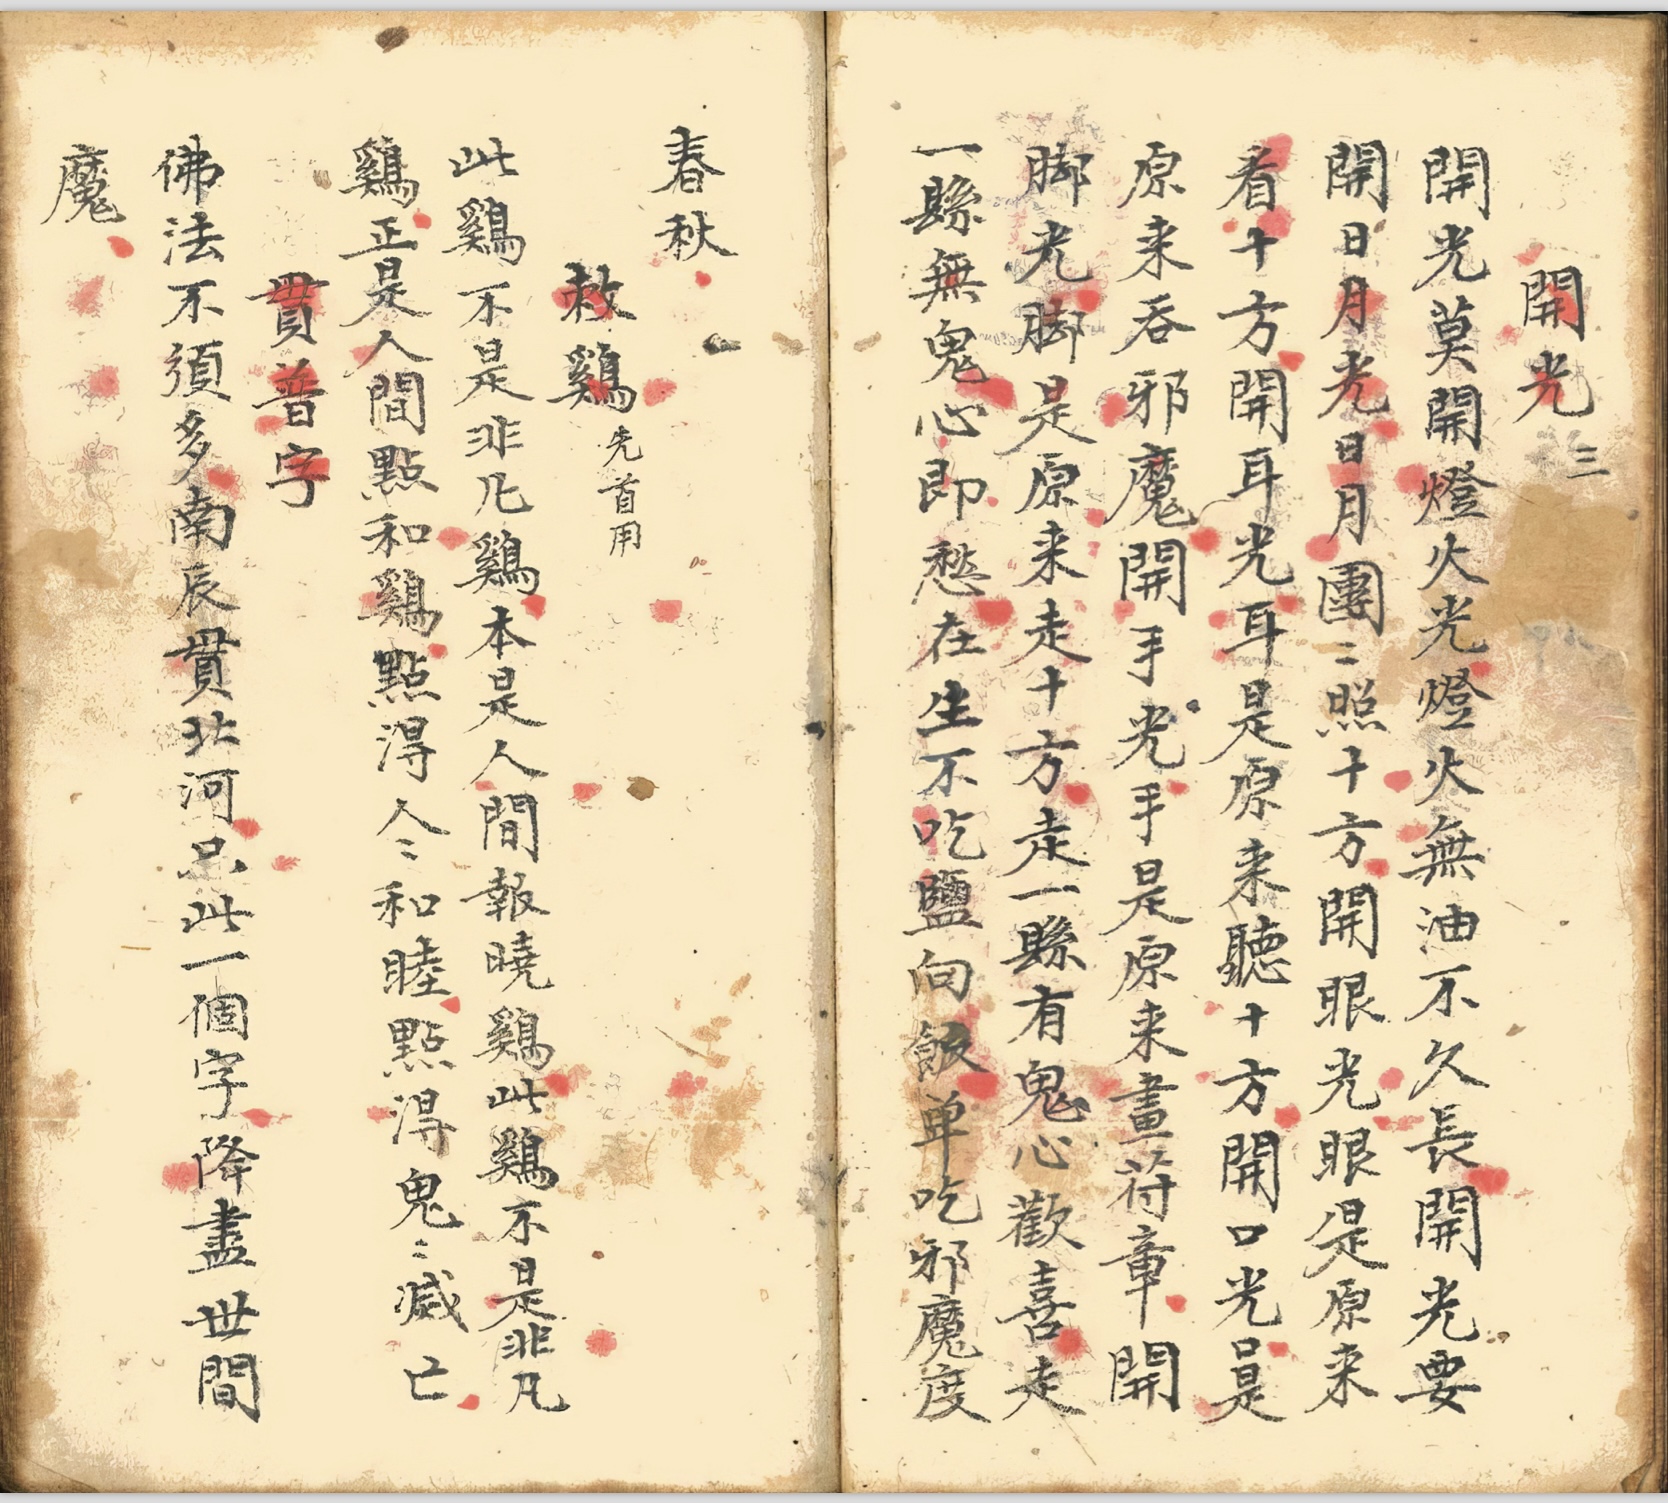 開光 三
開光莫開燈火光燈火無油不久長開光要
開日月光日月團〻照十方開眼光眼是原来
看十方開耳光耳是原来聽十方開口光口是
原来吞邪魔開手光手是原来畫符章開
脚光脚是原来走十方走一縣有鬼心歡喜走
一縣無鬼心即愁在生不吃鹽向飯单吃邪魔度
春秋
敕鷄 先首用
此鷄不是非凡鷄本是人間報曉鷄此鷄不是非凡
鷄正是人間點和鷄點得人〻和睦點得鬼〻滅亡
貫普字
佛法不須多南辰貫北河只此一個字降盡世間
魔